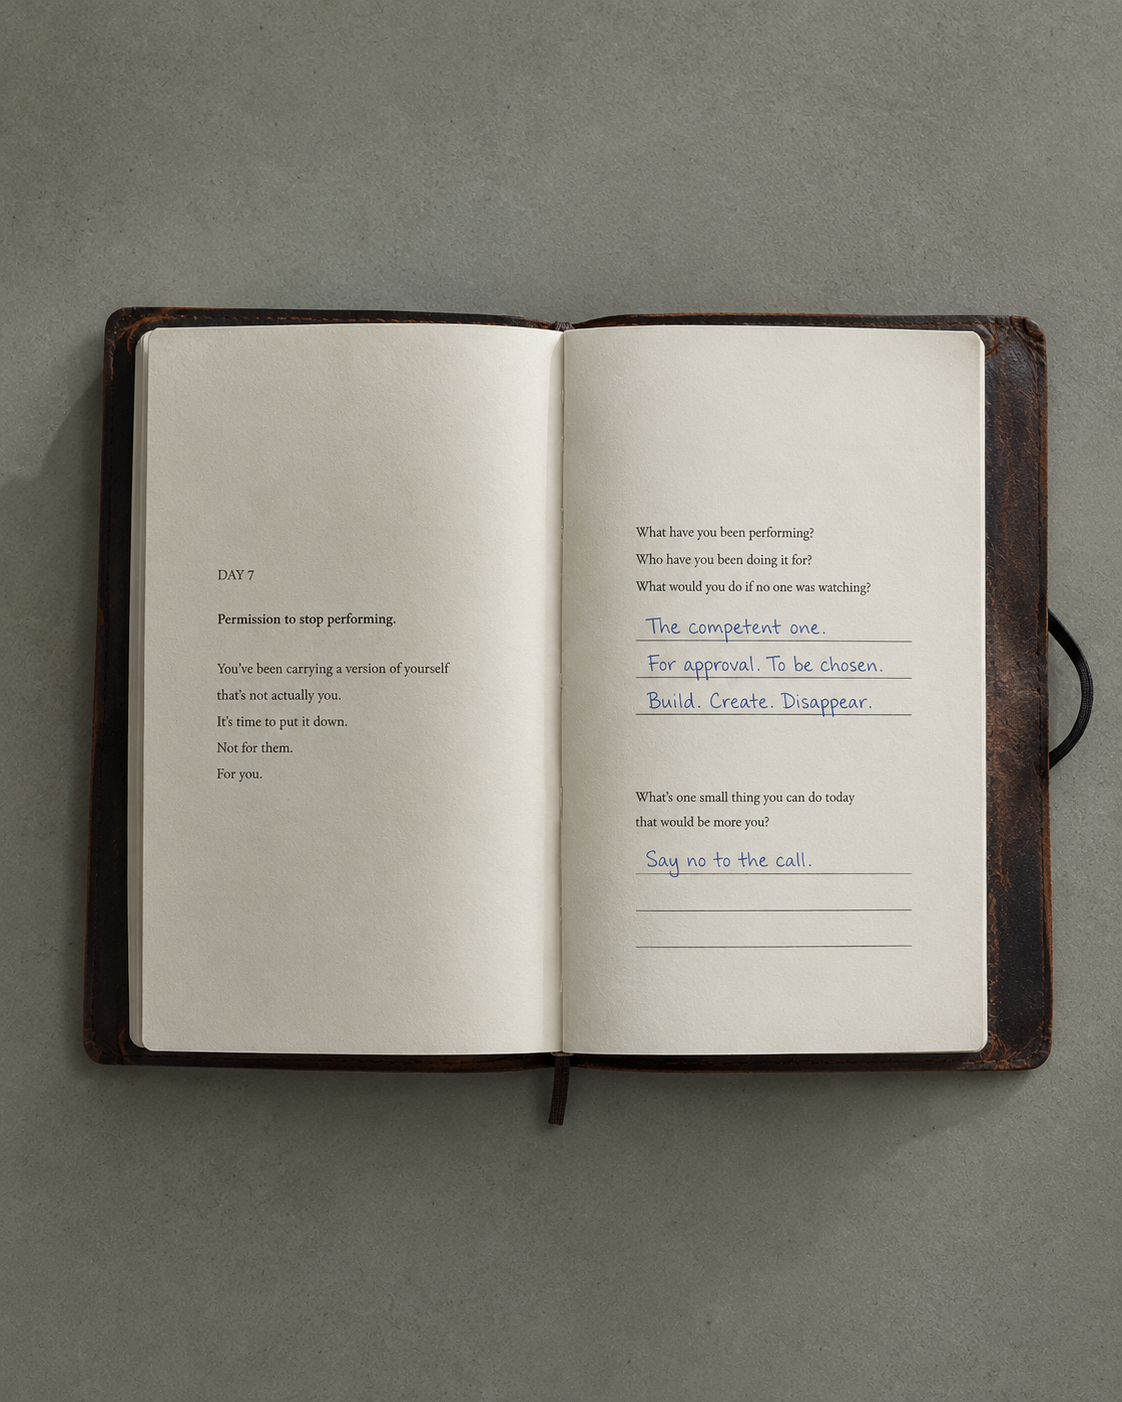 DAY 7
Permission to stop performing.
You've been carrying a version of yourself
that's not actually you.
It's time to put it down.
Not for them.
For you.
What have you been performing?
Who have you been doing it for?
What would you do if no one was watching?
The competent one.
For approval. To be chosen.
Build. Create. Disappear.
What's one small thing you can do today
that would be more you?
Say no to the call.